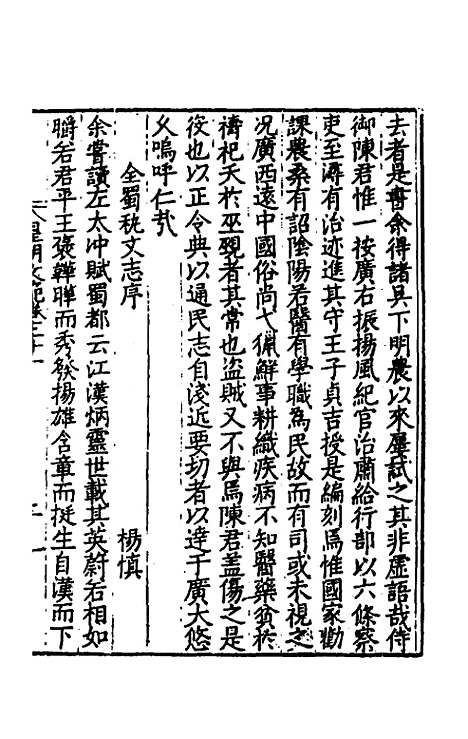 去者是書余得諸吳下明農以來屢試之其非虛語哉侍
御陳君惟一按廣右振揚風紀官治肅給行部以六條察
吏至潯有治迹進其守王子貞吉授是編刻焉惟國家勸
課農桑有詔陰陽若醫有學職為民故而有司或未視之
况廣西遠中國俗尚弋獵鮮事耕織疾病不知醫藥貧於
禱祀夭於巫覡者其常也盜賊又不與焉陳君盖傷之是
役也以正令典以通民志自淺近要切者以達于廣大悠
久嗚呼仁哉
全蜀秇文志序 楊慎
余嘗讀左太冲賦蜀都云江漢炳靈世載其英蔚若相如
皭若君平王褒韡曄而秀發揚雄含章而挺生自漢而下
皇明文範卷三十一